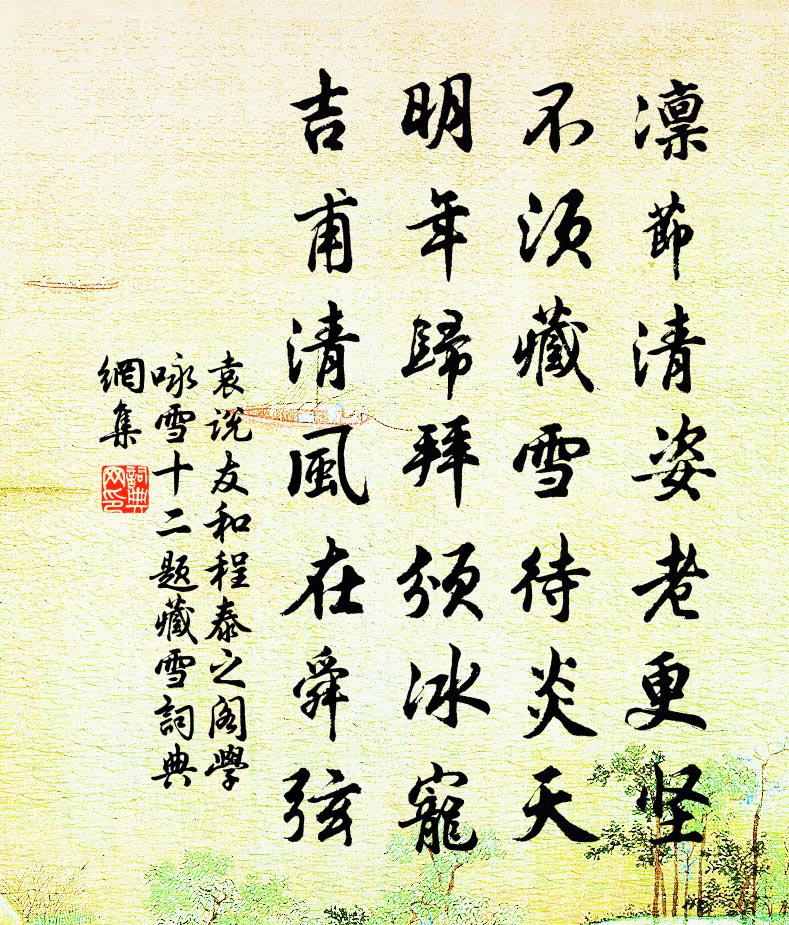 凛節清姿老更坚
不須藏雪待炎天
明年歸拜頒冰寵
吉甫清風在舜弦
袁说友和程泰之阁學
咏雪十二题藏雪詞典
網集
詞典
网印